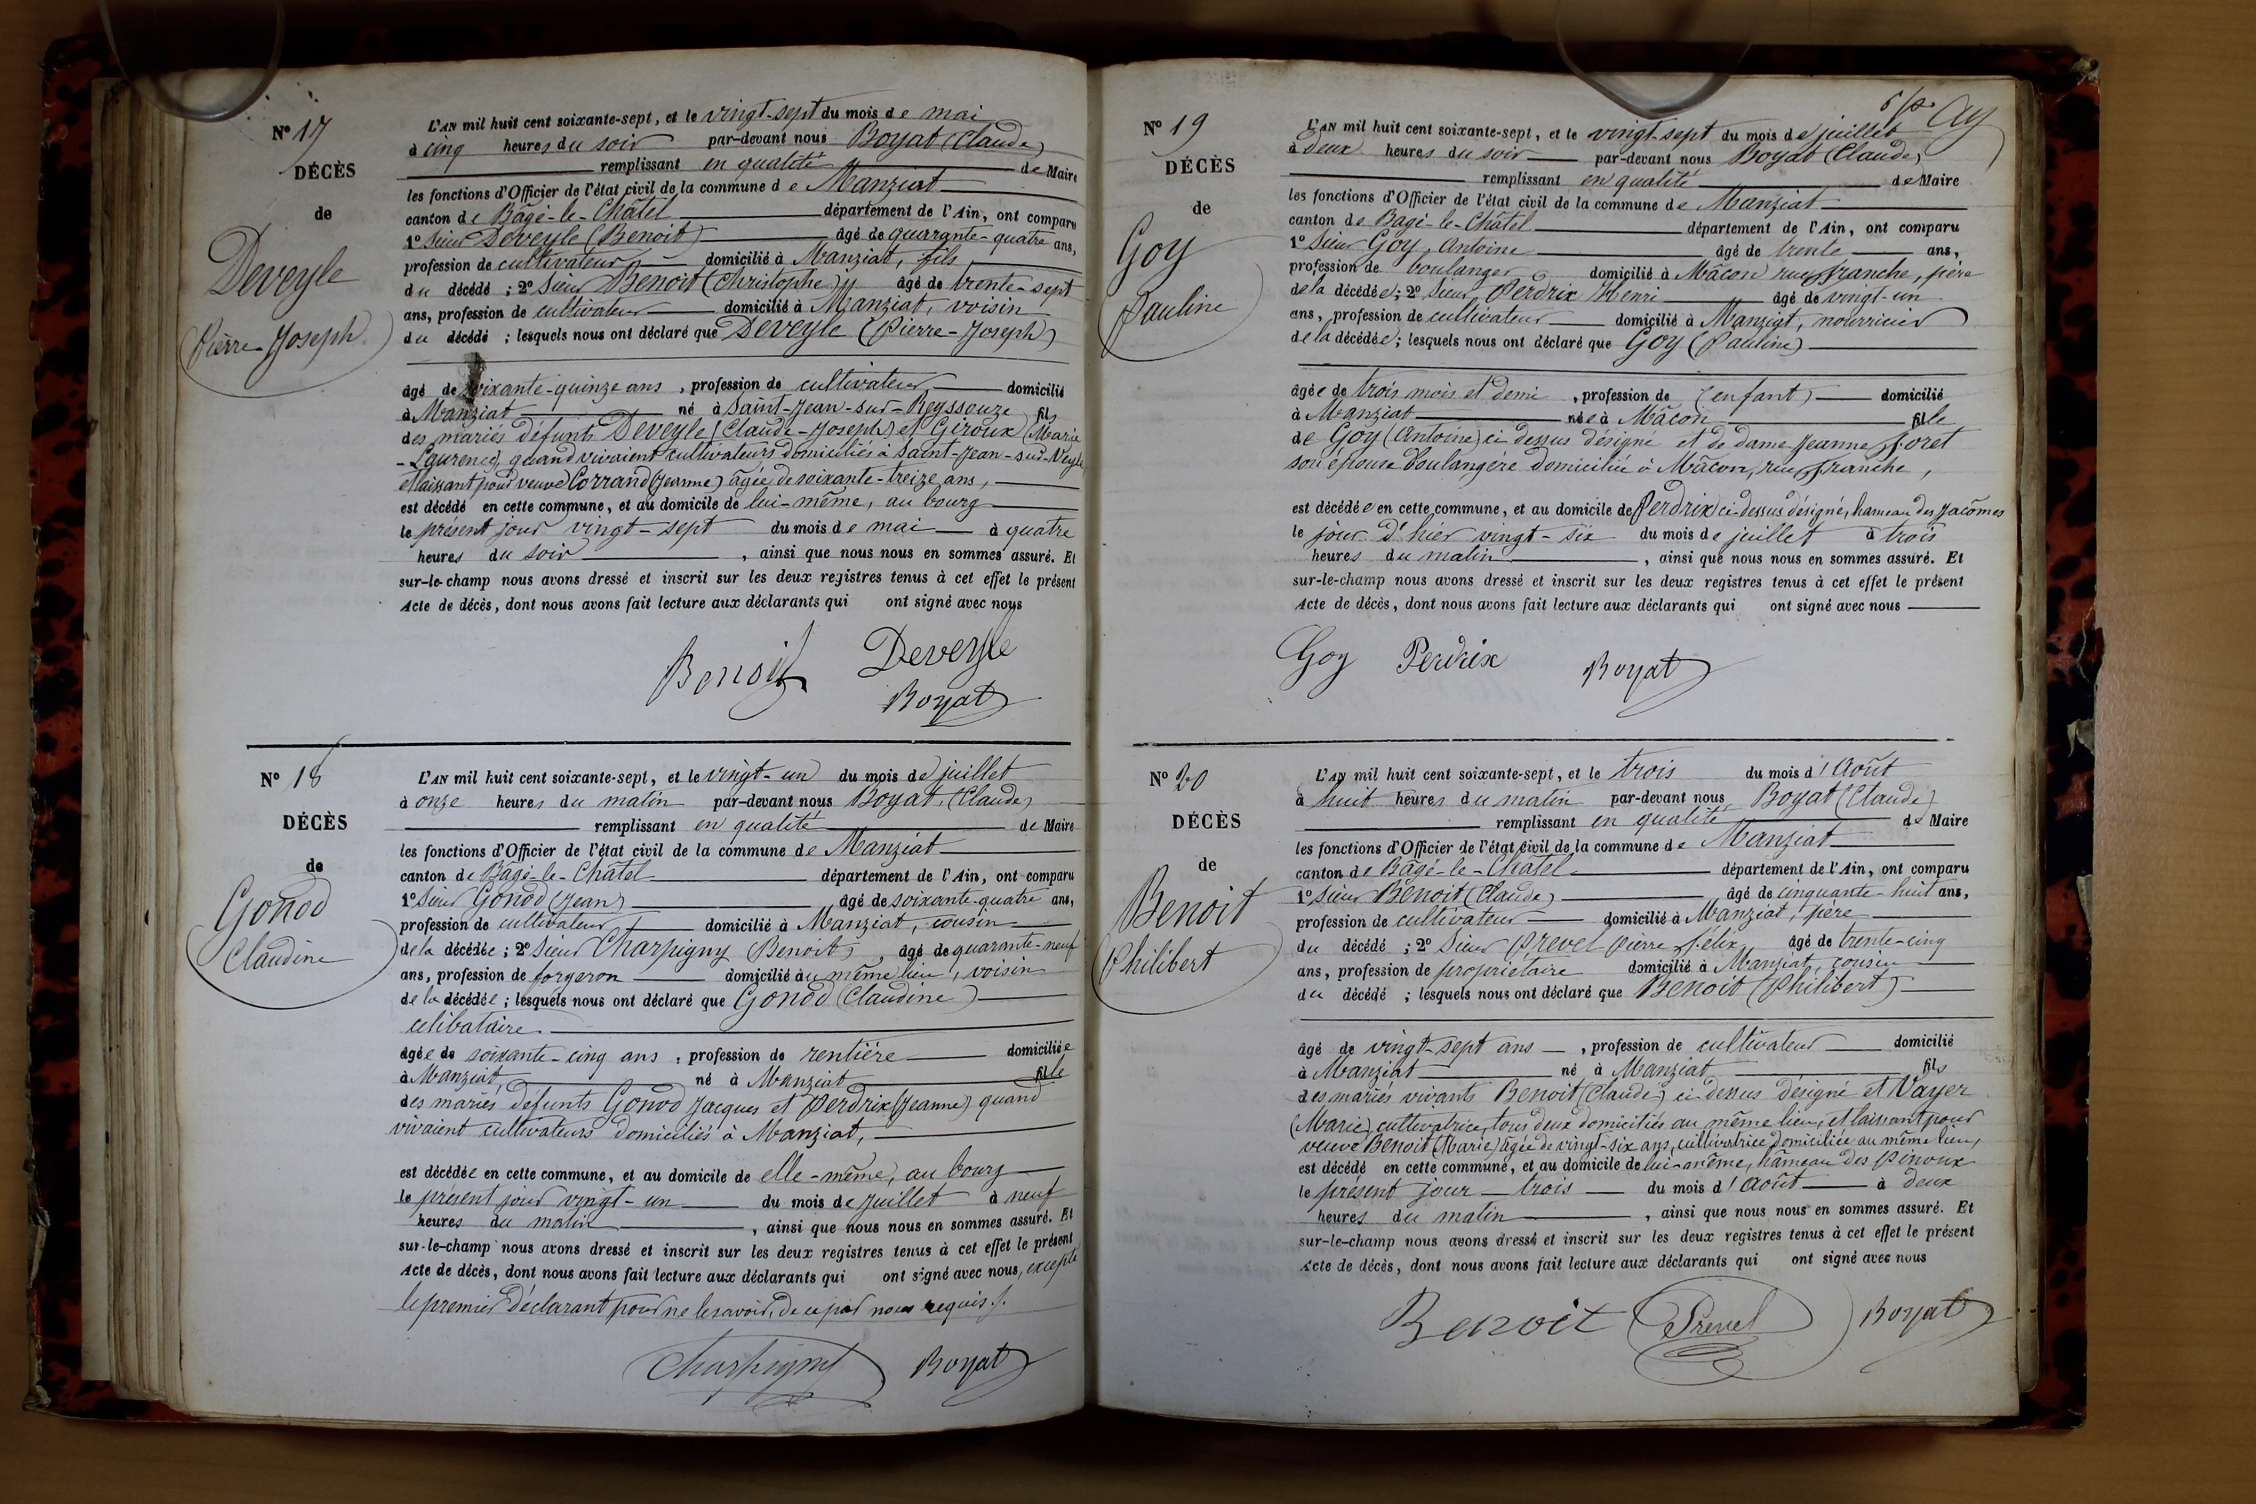 Nº 17
DÉCÈS
de
Deveyle
Pierre-Joseph
L'AN mil huit cent soixante-sept, et le vingt-sept du mois de mai
à cinq heures du soir par-devant nous Boyat (Claude)
remplissant en qualité de Maire
les fonctions d'Officier de l'état civil de la commune de Manziat
canton de Bâgé-le-Châtel département de l'Ain, ont comparu
1º Sieur Deveyle (Benoit) âgé de quarante-quatre ans,
profession de cultivateur domicilié à Manziat, fils
du décédé ; 2º Sieur Benoit (Christophe) âgé de trente-sept
ans, profession de cultivateur domicilié à Manziat, voisin
du décédé ; lesquels nous ont déclaré que Deveyle (Pierre-Joseph)
âgé de soixante-quinze ans, profession de cultivateur domicilié
à Manziat né à Saint-Jean-sur-Reyssouze fils
des mariés défunts Deveyle (Claude-Joseph) et Giroux (Marie
-Laurence) quand vivaient cultivateurs domiciliés à Saint-Jean-sur-Veyle
et laissant pour veuve Corrand (Jeanne) âgée de soixante-treize ans,
est décédé en cette commune, et au domicile de lui-même, au bourg
le présent jour vingt-sept du mois de mai à quatre
heures du soir, ainsi que nous nous en sommes assuré. Et
sur-le-champ nous avons dressé et inscrit sur les deux registres tenus à cet effet le présent
Acte de décès, dont nous avons fait lecture aux déclarants qui ont signé avec nous
Benoit Deveyle
Boyat
Nº 18
DÉCÈS
de
Gonod
Claudine
L'AN mil huit cent soixante-sept, et le vingt-un du mois de juillet
à onze heures du matin par-devant nous Boyat (Claude)
remplissant en qualité de Maire
les fonctions d'Officier de l'état civil de la commune de Manziat
canton de Bâgé-le-Châtel département de l'Ain, ont comparu
1º Sieur Gonod (Jean) âgé de soixante-quatre ans,
profession de cultivateur domicilié à Manziat, cousin
de la décédée ; 2º Sieur Charpigny (Benoit), âgé de quarante-neuf
ans, profession de forgeron domicilié au même lieu, voisin
de la décédée ; lesquels nous ont déclaré que Gonod (Claudine)
célibataire.
âgée de soixante-cinq ans, profession de rentière domiciliée
à Manziat, né à Manziat fille
des mariés défunts Gonod Jacques et Perdrix (Jeanne) quand
vivaient cultivateurs domiciliés à Manziat,
est décédée en cette commune, et au domicile de elle-même, au bourg
le présent jour vingt-un du mois de juillet à neuf
heures du matin, ainsi que nous nous en sommes assuré. Et
sur-le-champ nous avons dressé et inscrit sur les deux registres tenus à cet effet le présent
Acte de décès, dont nous avons fait lecture aux déclarants qui ont signé avec nous, excepté
le premier déclarant pour ne le savoir, de ce par nous requis.
Charpigny Boyat
Nº 19
DÉCÈS
de
Goy
Pauline
L'AN mil huit cent soixante-sept, et le vingt-sept du mois de juillet
à deux heures du soir par-devant nous Boyat (Claude)
remplissant en qualité de Maire
les fonctions d'Officier de l'état civil de la commune de Manziat
canton de Bagé-le-Châtel département de l'Ain, ont comparu
1º Sieur Goy, Antoine âgé de trente ans,
profession de boulanger domicilié à Mâcon rue franche, père
de la décédée ; 2º Sieur Perdrix Henri âgé de vingt-un
ans, profession de cultivateur domicilié à Manziat, nourricier
de la décédée ; lesquels nous ont déclaré que Goy (Pauline)
âgée de trois mois et demi, profession de (enfant) domicilié
à Manziat née à Mâcon fille
de Goy (Antoine) ci dessus désigné et de dame Jeanne Foret
son épouse boulangère domiciliée à Mâcon, rue franche,
est décédée en cette commune, et au domicile de Perdrix ci-dessus désigné, hameau des Jacômes
le jour d'hier vingt-six du mois de juillet à trois
heures du matin, ainsi que nous nous en sommes assuré. Et
sur-le-champ nous avons dressé et inscrit sur les deux registres tenus à cet effet le présent
Acte de décès, dont nous avons fait lecture aux déclarants qui ont signé avec nous
Goy Perdrix Boyat
Nº 20
DÉCÈS
de
Benoit
Philibert
L'AN mil huit cent soixante-sept, et le trois du mois d'Août
à huit heures du matin par-devant nous Boyat (Claude)
remplissant en qualité de Maire
les fonctions d'Officier de l'état civil de la commune de Manziat
canton de Bâgé-le-Châtel département de l'Ain, ont comparu
1º Sieur Benoit (Claude) âgé de cinquante-huit ans,
profession de cultivateur domicilié à Manziat, père
du décédé ; 2º Sieur Prevel Pierre Félix âgé de trente-cinq
ans, profession de propriétaire domicilié à Manziat, cousin
du décédé ; lesquels nous ont déclaré que Benoit (Philibert)
âgé de vingt-sept ans, profession de cultivateur domicilié
à Manziat né à Manziat fils
des mariés vivants Benoit (Claude) ci dessus désigné et Vayer
(Marie) cultivatrice, tous deux domiciliés au même lieu, et laissant pour
veuve Benoit (Marie) âgée de vingt-six ans, cultivatrice domiciliée au même lieu,
est décédé en cette commune, et au domicile de lui-même, hameau des Pinoux
le présent jour trois du mois d'Août à deux
heures du matin, ainsi que nous nous en sommes assuré. Et
sur-le-champ nous avons dressé et inscrit sur les deux registres tenus à cet effet le présent
Acte de décès, dont nous avons fait lecture aux déclarants qui ont signé avec nous
Benoit Prevel Boyat